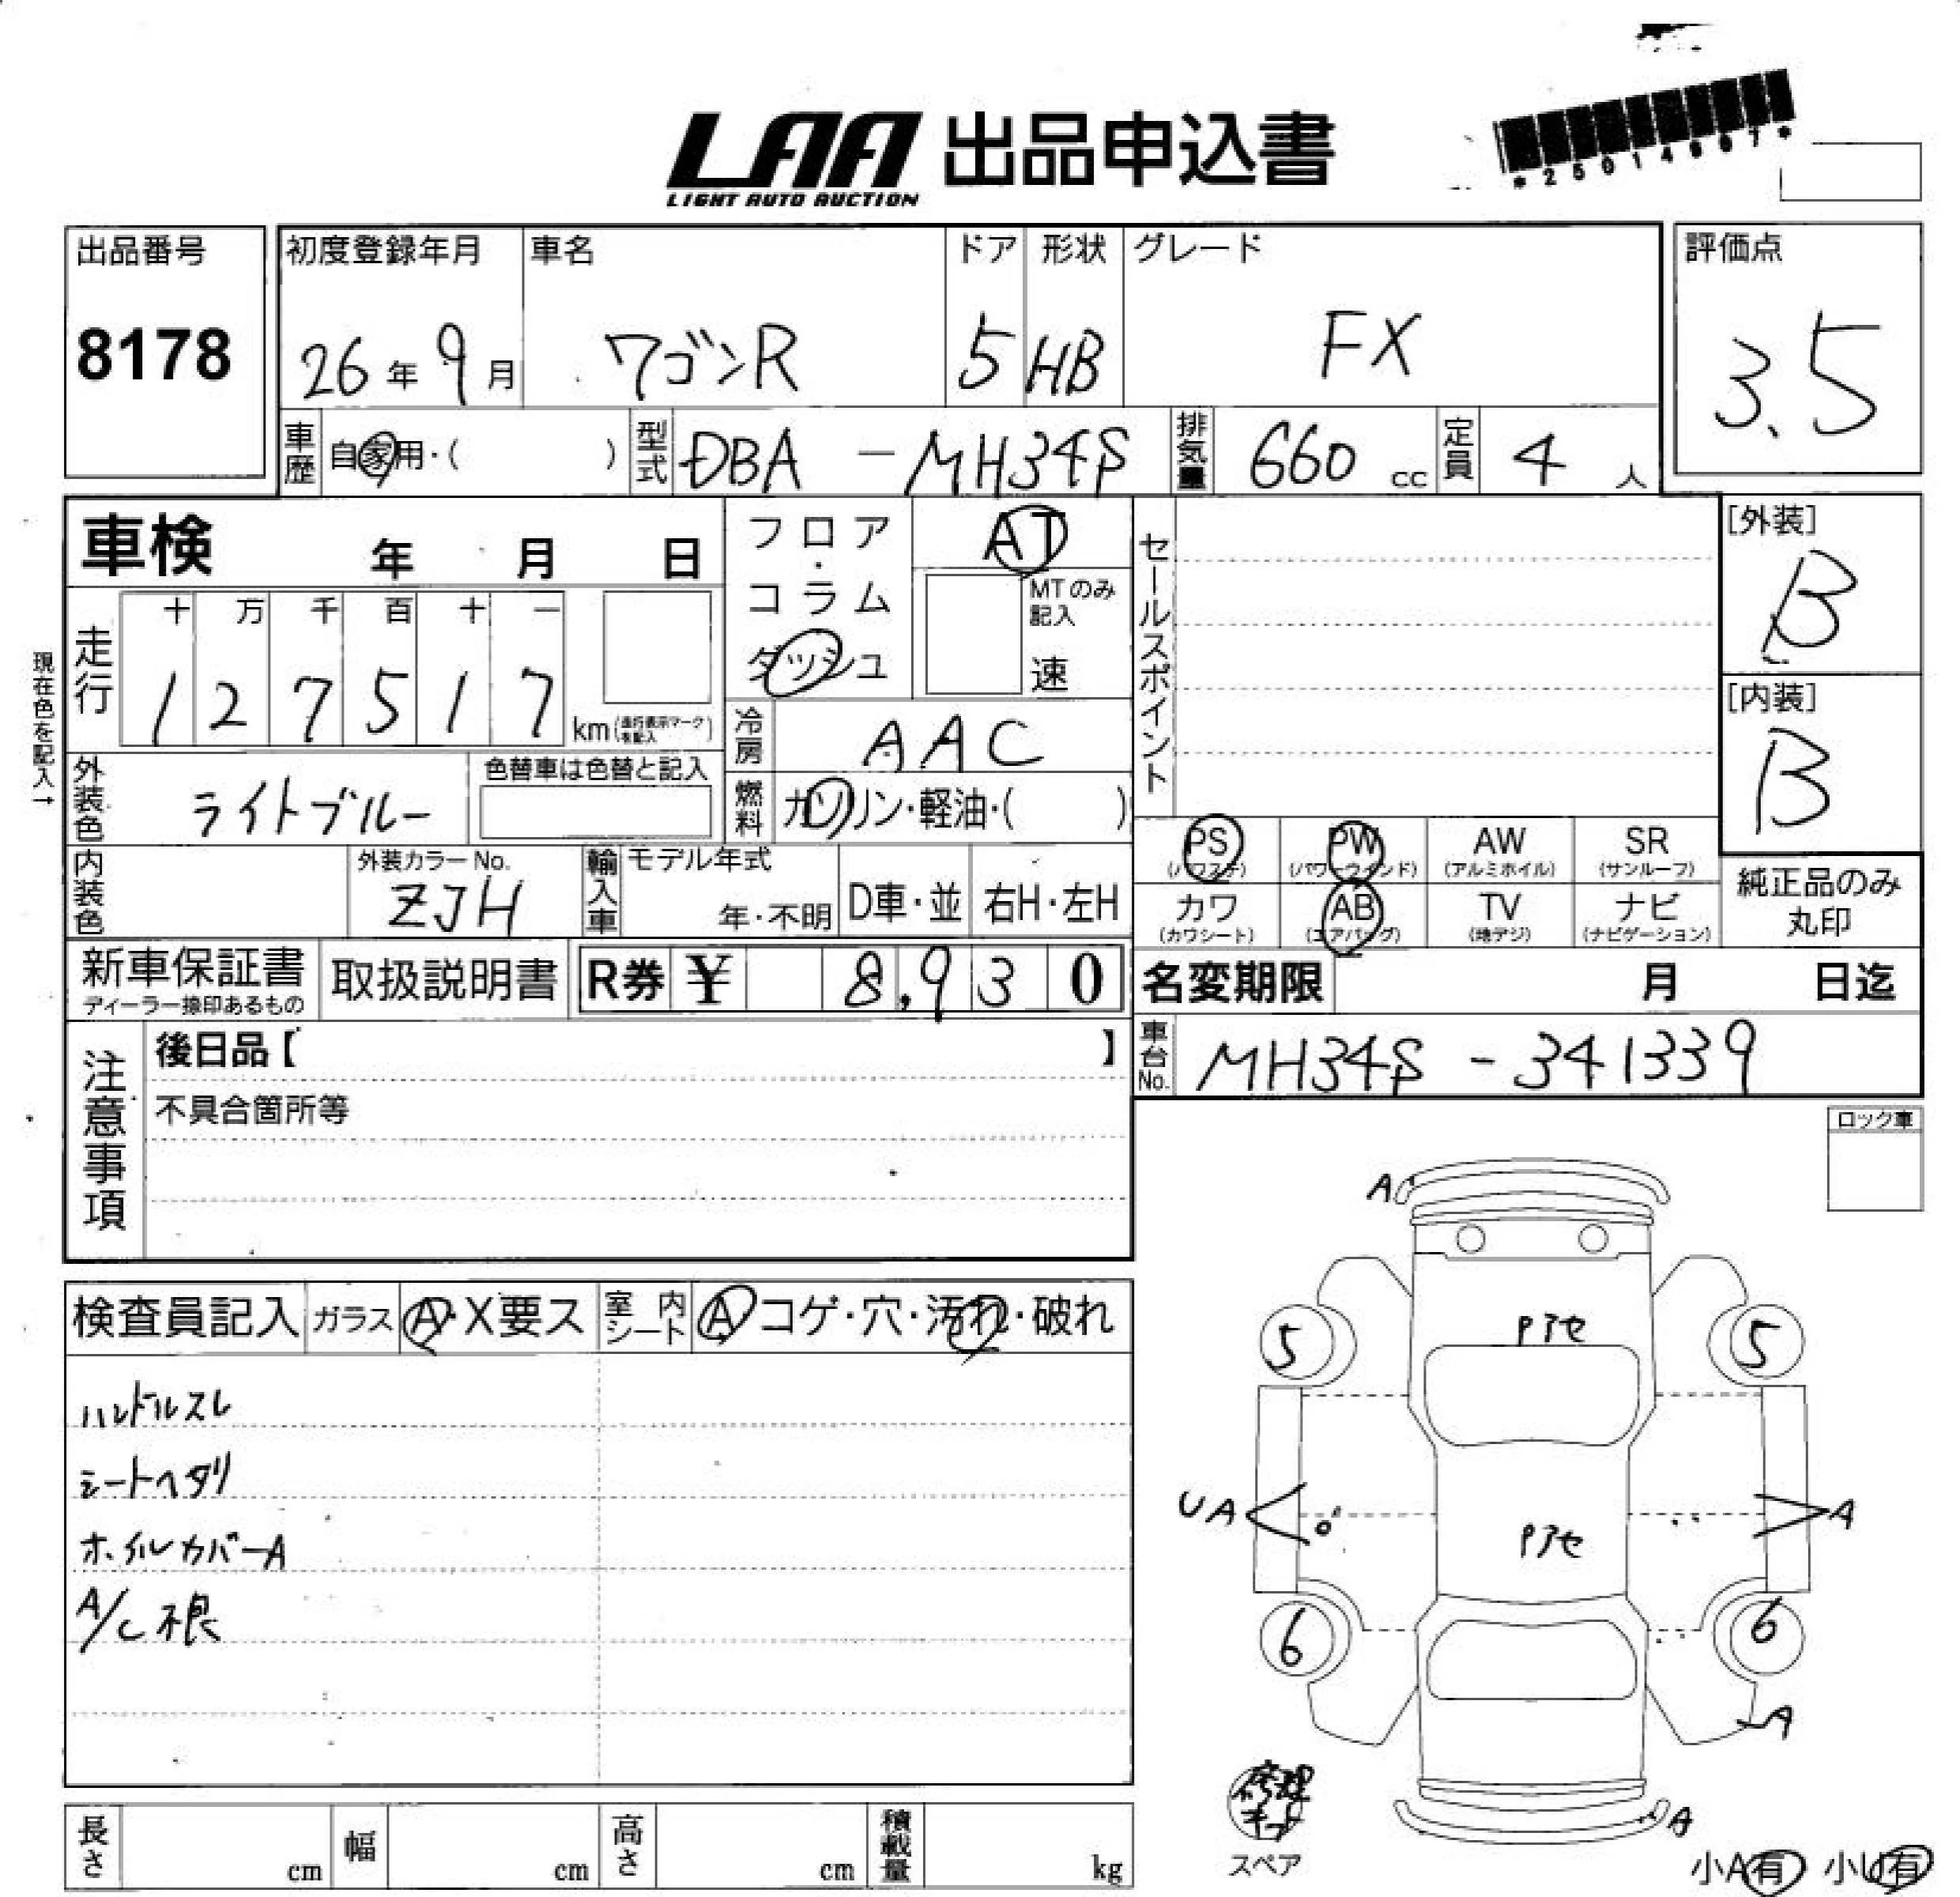 LAA 出品申込書
LIGHT AUTO AUCTION
*25014667*
出品番号 初度登録年月 車名 ドア 形状 グレード 評価点
8178 26年 9月 ワゴンR 5 HB FX 3.5
車歴 自家用・( ) 型式 DBA - MH34S 排気量 660 cc 定員 4 人
車検 年 月 日 フロア・コラム ダッシュ AT MTのみ記入 速
セールスポイント
[外装] B
現在色を記入→
走行 十 万 千 百 十 一
1 2 7 5 1 7 km (走行表示マークを記入)
[内装] B
冷房 AAC
外装色 ライトブルー 色替車は色替と記入 燃料 ガソリン・軽油・( )
PS (パワステ) PW (パワーウインド) AW (アルミホイル) SR (サンルーフ)
内装色 外装カラーNo. ZJH 輸入車 モデル年式 年・不明 D車・並 右H・左H
カワ (カワシート) AB (エアバッグ) TV (地デジ) ナビ (ナビゲーション)
純正品のみ丸印
新車保証書 ディーラー捺印あるもの 取扱説明書 R券 ¥ 8,930 名変期限 月 日迄
注意事項 後日品【 】 車台No. MH34S - 341339
不具合箇所等
ロック車
検査員記入 ガラス A・X要ス 室内シート A コゲ・穴・汚れ・破れ
ハンドルスレ
シートヘタリ
ホイルカバーA
A/C不良
A
Pアセ
5 5
UA A
Pアセ
6 6
A
修理キット
スペア
A
小A有 小U有
長さ cm 幅 cm 高さ cm 積載量 kg